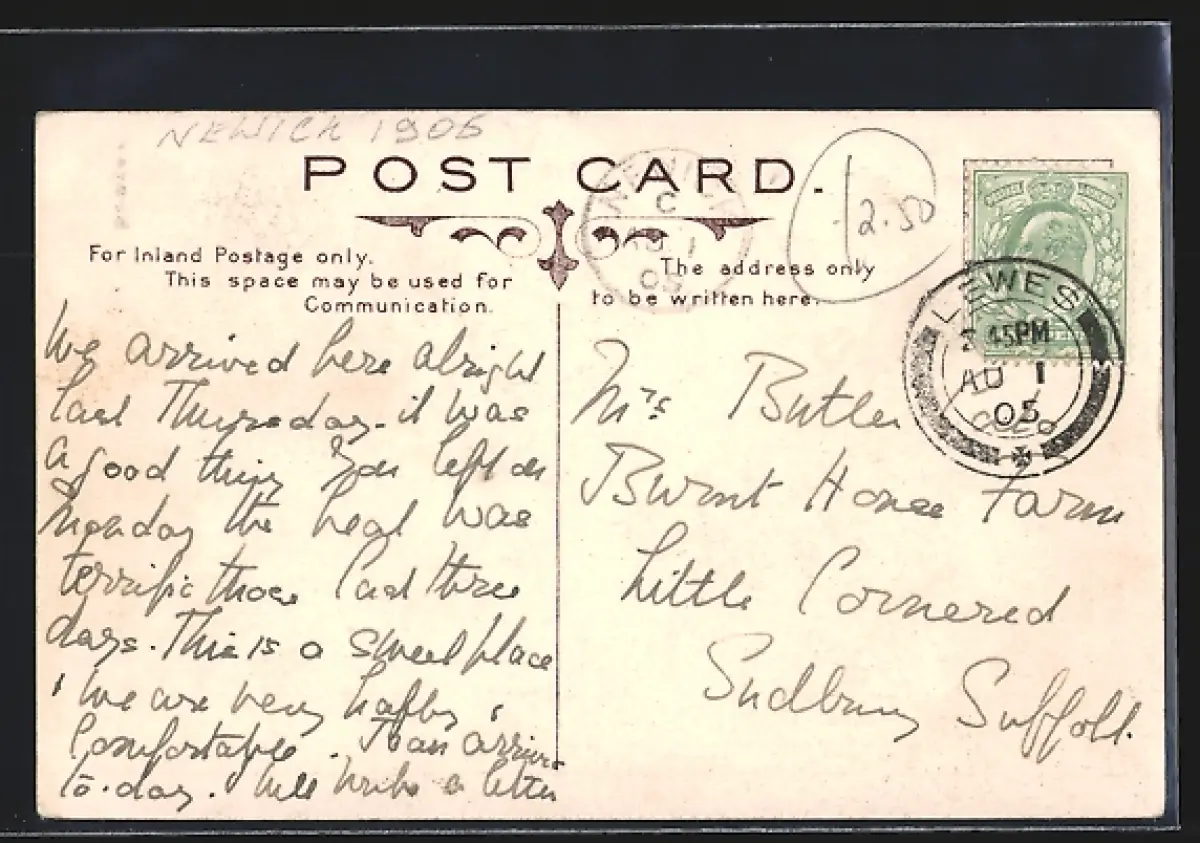 NEWICK 1905
POST CARD.
12.50
For Inland Postage only.
This space may be used for
Communication.
The address only
to be written here.
LEWES
45PM
AU 1
05
NEWICK
C
AU 1
05
We arrived here alright
last Thursday. it was
a good thing you left on
Monday the heat was
terrific those last three
days. This is a sweet place
& we are very happy &
comfortable. Joan arrives
to-day. Will write a letter
Mrs Butler
Burnt House Farm
Little Cornered
Sudbury Suffolk.